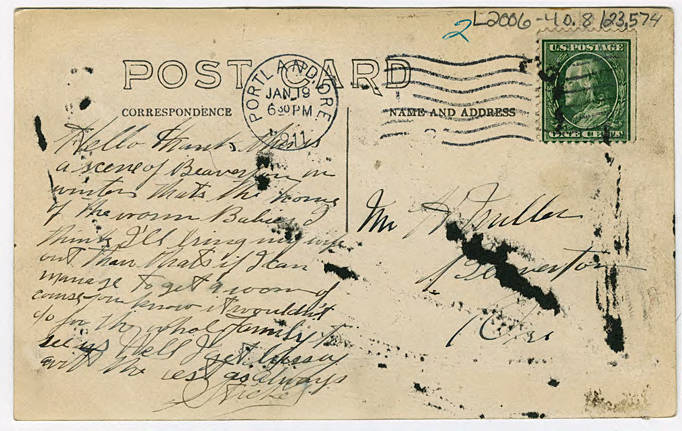 2 L2006-40.8 123,574
U.S. POSTAGE
POST CARD
PORTLAND, ORE
JAN 19
6 30 PM
1911
CORRESPONDENCE
NAME AND ADDRESS
Hello this is
a scene of Beaverton in
winter thats the home
of the worm
think I'll bring my wife
out than thats if I can
manage to get a room of
course you know it wouldn't
do for the whole family to
see us Well I
with the rest as always
Mr
Beaverton
Ore